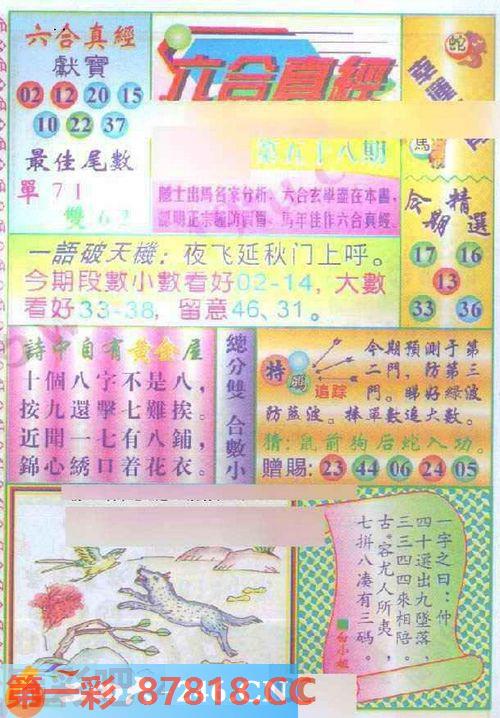 六合真經
獻寶
02 12 20 15
10 22 37
最佳尾數
單71
雙62
六合真經
第五十八期
隱士出馬名家分析，六合玄學盡在本書，
馬年佳作六合真經
蛇
馬
今期精選
17 16
13
33 36
一語破天機：夜飞延秋门上呼。
今期段數小數看好02-14，大數
看好33-38，留意46、31。
詩中自有黃金屋
十個八字不是八，
按九還擊七難挨。
近聞一七有八鋪，
錦心綉口着花衣。
總分雙 合數小
特碼
追踪
今期預測于第
二門，防第三
門。睇好綠波
防蓝波。捧單數追大數。
猜：鼠前狗后蛇入功。
贈賜：23 44 06 24 05
一字之曰：仲
四十選出九墜落，
三三四四來相陪。
古容尤人所夷，
七拼八凑有三码。
白小姐
第一彩 87818.CC
246.CN